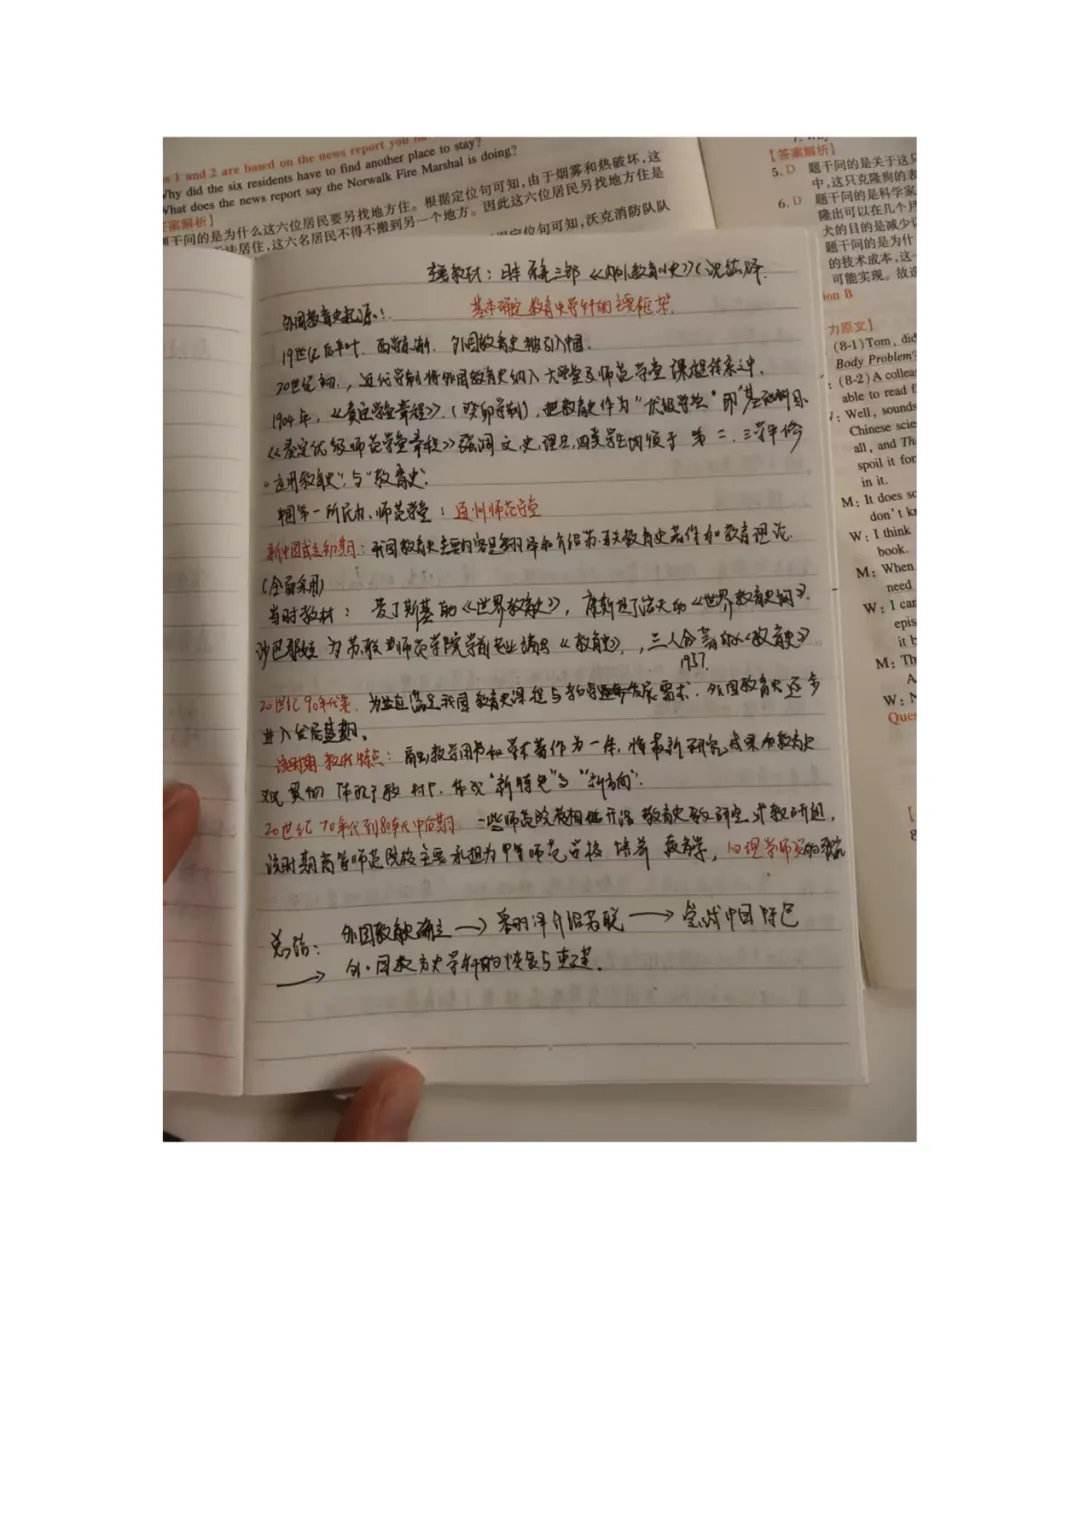 s 1 and 2 are based on the news report you
Why did the six residents have to find another place to stay?
What does the news report say the Norwalk Fire Marshal is doing?
案解析】
题干问的是为什么这六位居民要另找地方住。根据定位句可知,由于烟雾和热破坏,这
法居住,这六名居民不得不搬到另一个地方。因此这六位居民另找地方住是
定位句可知,沃克消防队队
【答案解析】
5. D 题干问的是关于这只
中,这只克隆狗的表
6. D 题干问的是科学家
隆出可以在几个月
犬的目的是减少训
题干问的是为什
的技术成本,这一
可能实现。故选
ion B
力原文】
(8-1) Tom, did
Body Problem?
(8-2) A collea
able to read f
Well, sounds
Chinese scie
all, and Th
spoil it for
in it.
M: It does so
don't kn
W: I think
book.
M: When
need
W: I can
epis
it b
M: Th
A
W: N
Ques
主要教材:日本 三郎《外国教育史》(沈 译
基本确定教育史学科的主要框架.
外国教育史起源:
19世纪后半叶,西学东渐,外国教育史被引入中国.
20世纪初,近代学制将外国教育史纳入大学堂及师范学堂课程体系之中.
1904年,《奏定学堂章程》(癸卯学制),把教育史作为“ ”的基础科目
《奏定优级师范学堂章程》强调文,史,理 四类学生均须于第二、三学年修
“应用教育史”与“教育史”.
中国第一所民办师范学堂:通州师范学堂
新中国成立初期:我国教育史主要内容是翻译和介绍苏联教育史著作和教育理论.
(全面采用)
当时教材: 麦丁斯基的《世界教育史》,康斯坦丁诺夫的《世界教育史纲》
沙巴耶娃为苏联 师范学院学前专业编写《教育史》,三人合著的《教育史》
1957.
20世纪90年代是,为 满足我国教育史课程与 发展需求,外国教育史逐步
进入发展 期。
该时期教材特点:高 教学用书和学术著作为一体,将最新研究成果和教育史
观 体现于教材中,体现“新特色”与“新方向”.
20世纪70年代到80年代中后期 一些师范院校相继开设教育史教研室或教研组,
该时期高等师范院校主要承担为中等师范学校培养教育学,心理学师资的
总结: 外国教育史确立→翻译介绍苏联→尝试中国特色
→外国教育史学科的恢复与重建.